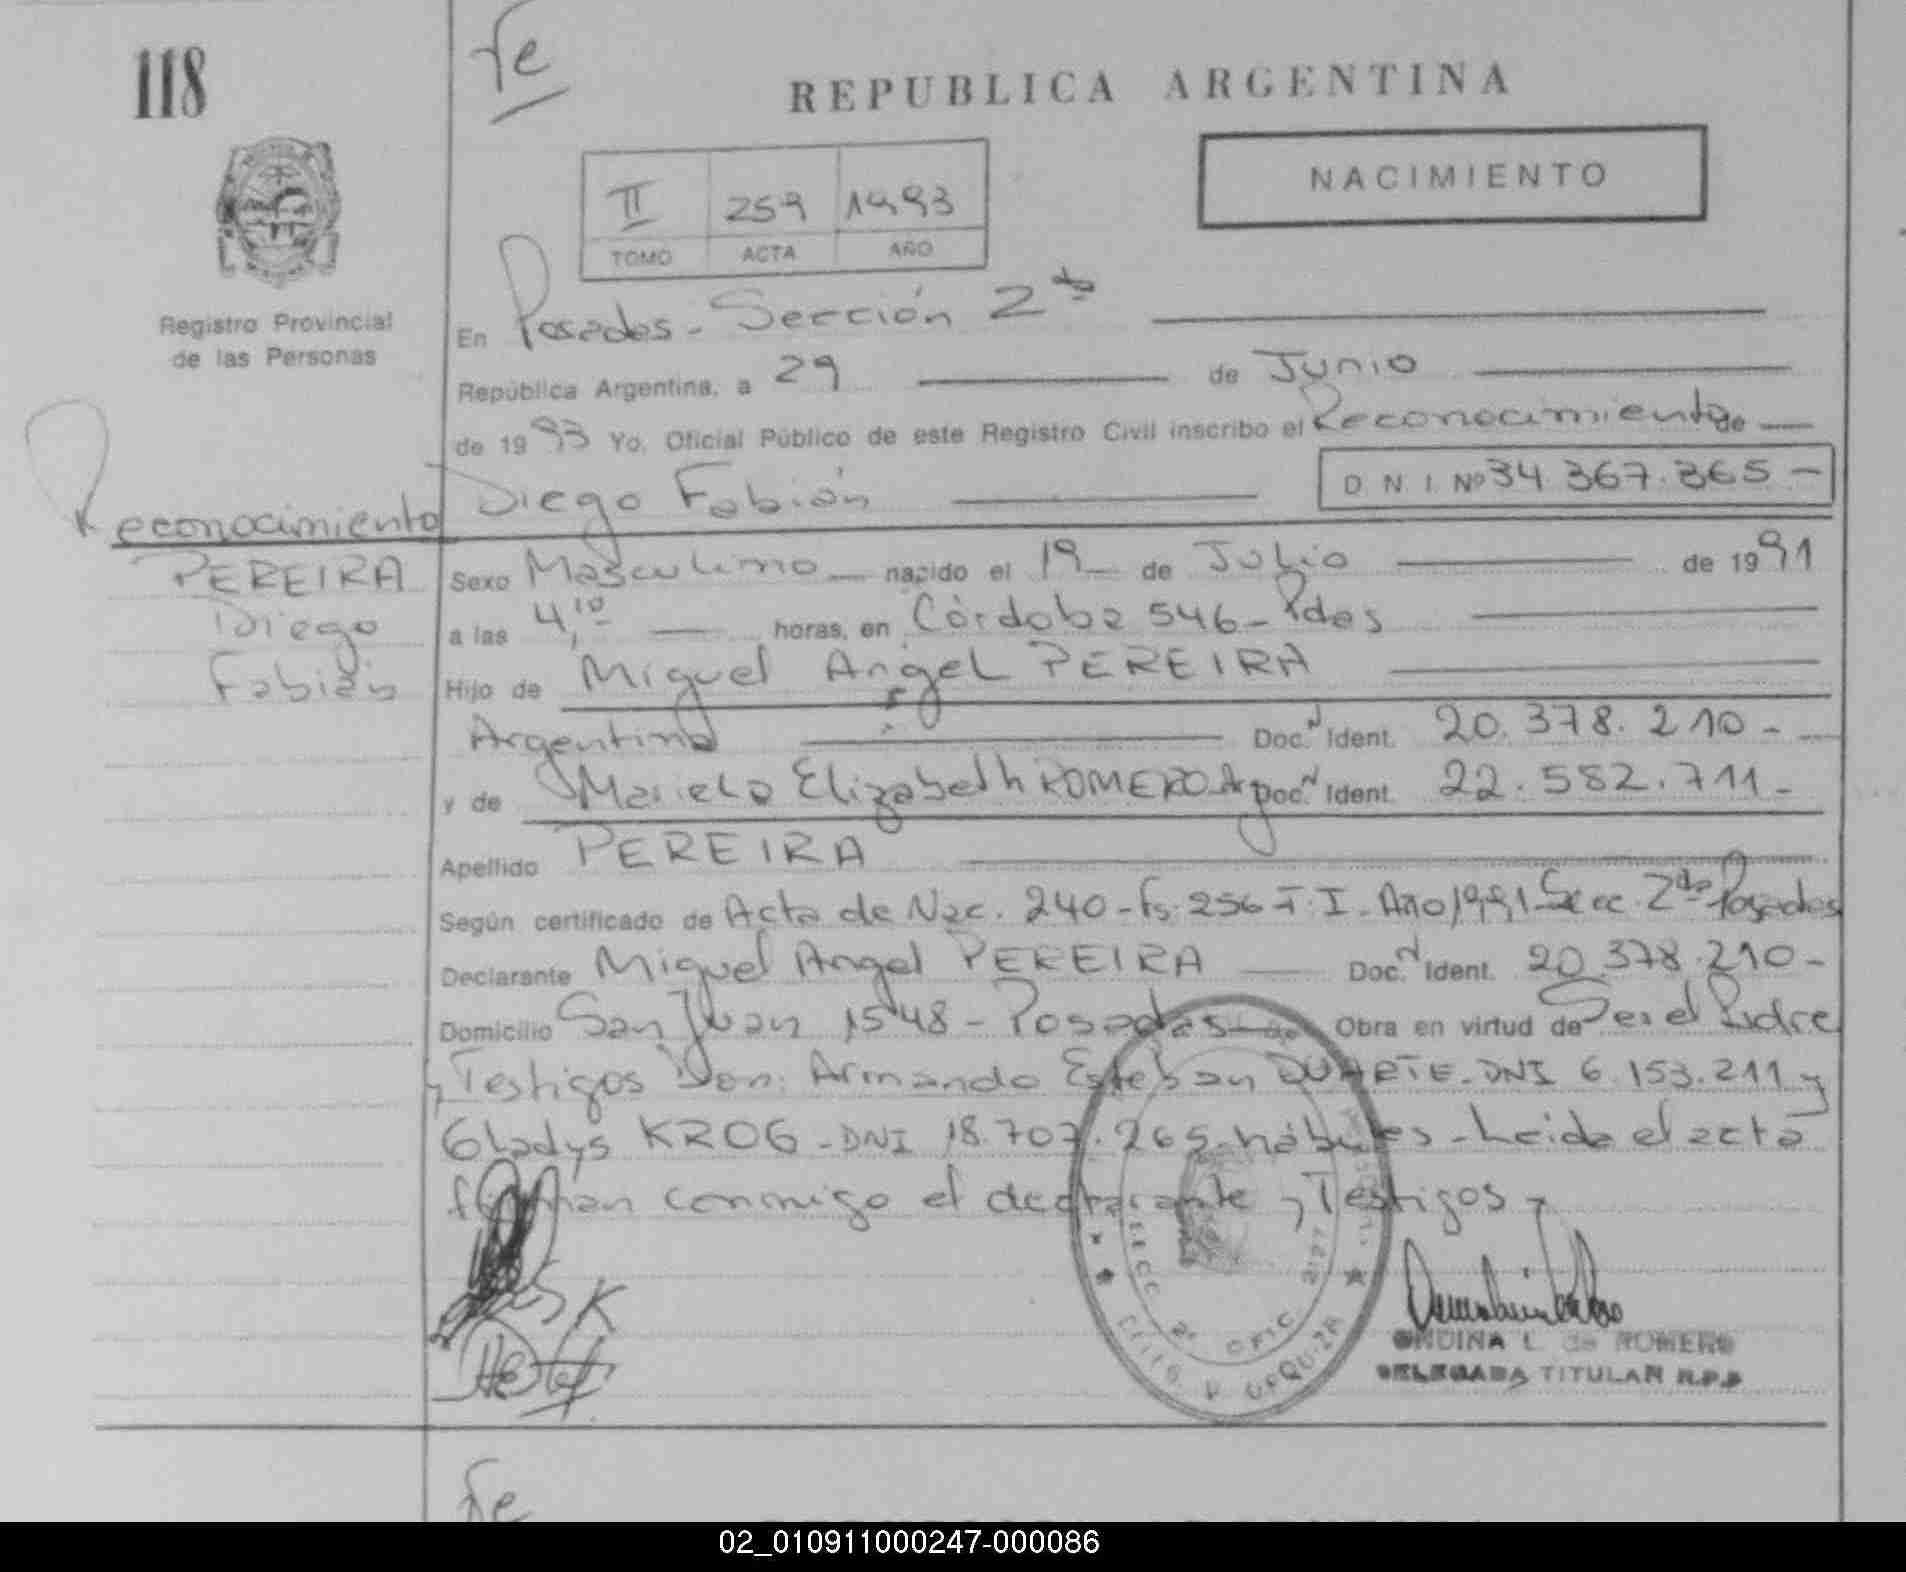 118
fe
REPUBLICA ARGENTINA
NACIMIENTO
II 259 1993
TOMO ACTA AÑO
Registro Provincial
de las Personas
En Posadas - Sección 2da
República Argentina, a 29 de Junio
de 1993 Yo, Oficial Público de este Registro Civil inscribo el Reconocimiento de
Diego Fabián D N I Nº 34.367.365 -
Reconocimiento
PEREIRA
Diego
Fabián
Sexo Masculino nacido el 19 de Julio de 1991
a las 4,10 horas, en Córdoba 546 - Pdas
Hijo de Miguel Angel PEREIRA
Argentino Doc. Ident. 20.378.210 -
y de Mariela Elizabeth ROMERO Arg Doc. Ident. 22.582.711 -
Apellido PEREIRA
Según certificado de Acta de Nac. 240 - Fs. 256 T. I - Año 1991 Secc. 2da Posadas
Declarante Miguel Angel PEREIRA Doc. Ident. 20.378.210 -
Domicilio San Juan 1548 - Posadas Obra en virtud de Ser el Padre
y Testigos Don: Armando Esteban DUARTE - DNI 6.153.211 y
Gladys KROG - DNI 18.707.265 - hábiles - Leida el acta
firman conmigo el declarante y Testigos -
SECC 2ª OFIC
URQUIZA
ONDINA L. de ROMERO
DELEGADA TITULAR R.P.P
fe
02_010911000247-000086